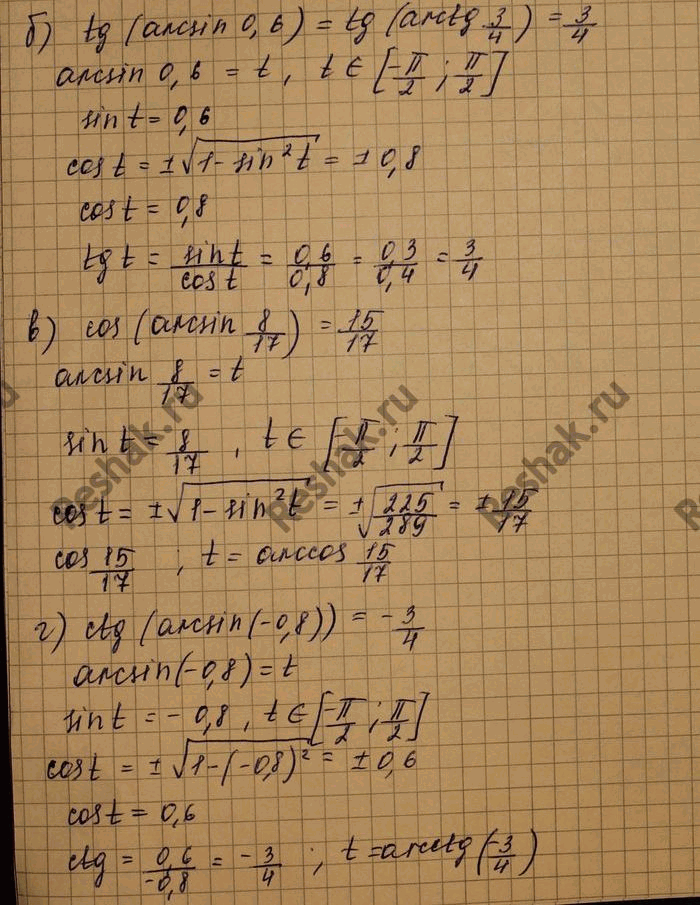 б) tg (arcsin 0,6) = tg (arctg 3/4) = 3/4
arcsin 0,6 = t , t ∈ [-π/2 ; π/2]
sin t = 0,6
cos t = ±√(1 - sin² t) = ± 0,8
cos t = 0,8
tg t = sin t/cos t = 0,6/0,8 = 0,3/0,4 = 3/4
в) cos (arcsin 8/17) = 15/17
arcsin 8/17 = t
sin t = 8/17 , t ∈ [-π/2 ; π/2]
cos t = ±√(1 - sin² t) = ±√(225/289) = ± 15/17
cos 15/17 ; t = arccos 15/17
г) ctg (arcsin (-0,8)) = - 3/4
arcsin (-0,8) = t
sin t = - 0,8 , t ∈ [-π/2 ; π/2]
cos t = ±√(1 - (-0,8)²) = ± 0,6
cos t = 0,6
ctg = 0,6/-0,8 = - 3/4 ; t = arcctg (-3/4)
Reshak.ru
Reshak.ru
Reshak.ru